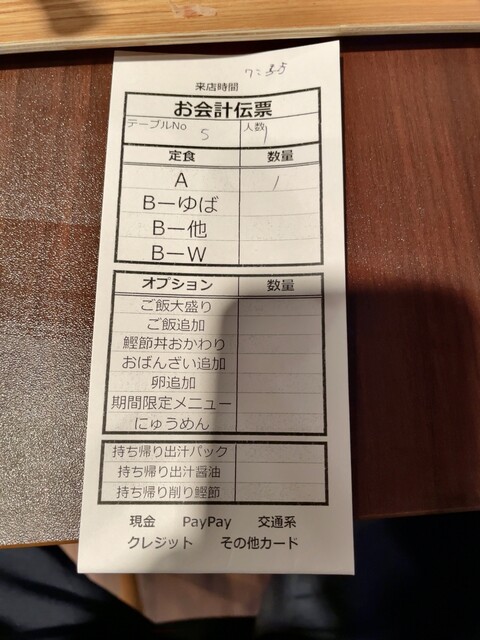 来店時間 7:55
お会計伝票
テーブルNo 5 人数 1
定食 数量
A 1
B－ゆば
B－他
B－W
オプション 数量
ご飯大盛り
ご飯追加
鰹節丼おかわり
おばんざい追加
卵追加
期間限定メニュー
にゅうめん
持ち帰り出汁パック
持ち帰り出汁醤油
持ち帰り削り鰹節
現金 PayPay 交通系
クレジット その他カード